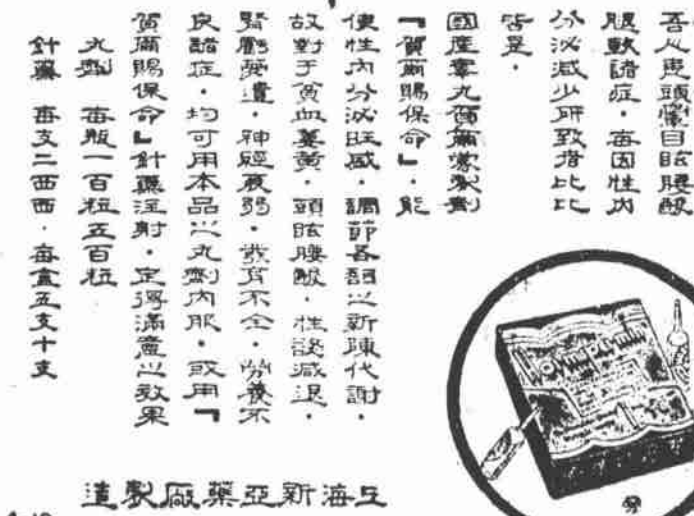 吾人患頭暈目眩腰酸
腿軟諸症・每因性內
分泌減少所致者比比
皆是・
國產睾丸賀爾蒙製劑
『賀爾賜保命』・能
使性內分泌旺盛・調節各部之新陳代謝・
故對于貧血萎黃・頭眩腰酸・性慾減退・
腎虧夢遺・神經衰弱・發育不全・營養不
良諸症・均可用本品之丸劑內服・或用『
賀爾賜保命』針藥注射・定得滿意之效果
丸劑 每瓶一百粒五百粒
針藥 每支二西西・每盒五支十支
上海新亞藥廠製造